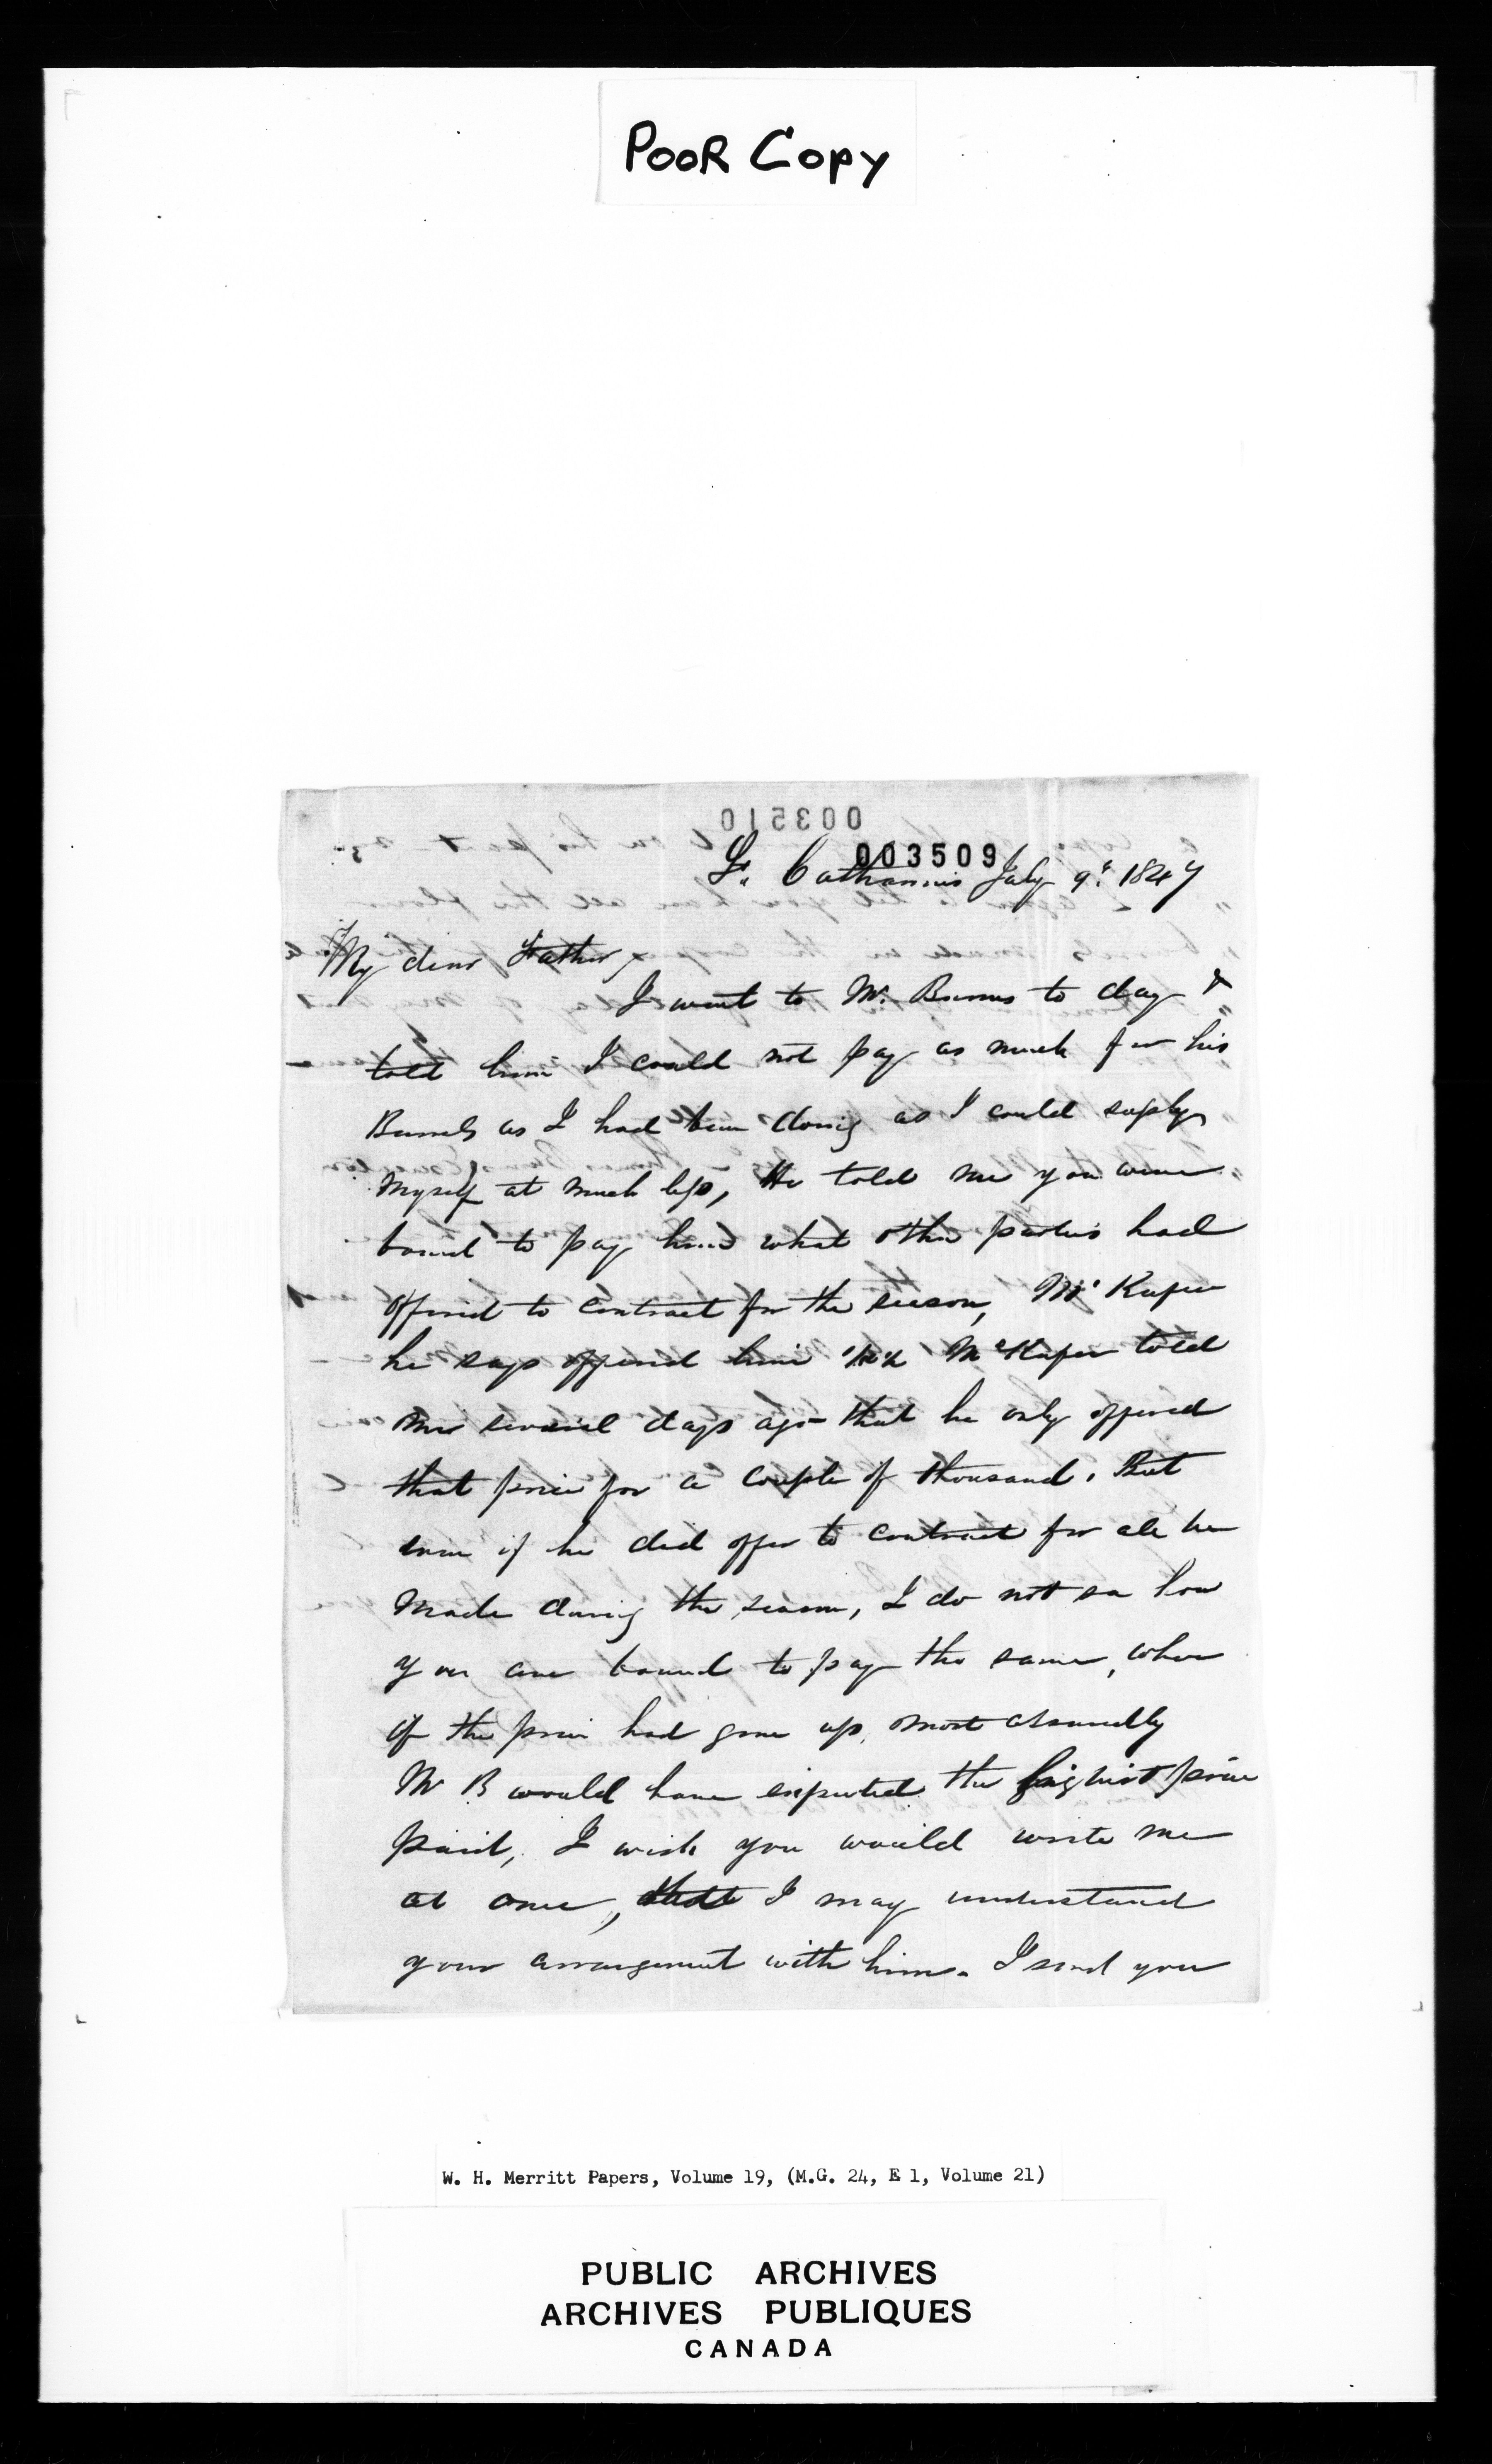 POOR COPY
003510
003509
St. Catharines July 9th 1847
My dear Father,
I went to Mr. Burns to day &
told him I could not pay as much for his
Barrels as I had been doing as I could suply
myself at much less, He told me you were
bound to pay him what other parties had
offered to contract for the season, Mr
he says offered him Mr told
me several days ago that he only offered
that price for a couple of thousand. But
even if he did offer to contract for all he
made during the season, I do not see how
you are bound to pay the same, when
if the price had gone up, most assuredly
Mr B would have expected the highest price
paid, I wish you would write me
at once, that I may understand
your arrangement with him. I send you
W. H. Merritt Papers, Volume 19, (M.G. 24, E 1, Volume 21)
PUBLIC ARCHIVES
ARCHIVES PUBLIQUES
CANADA